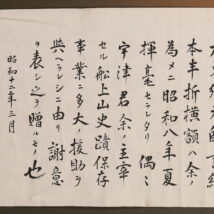 本年折横額ハ余ノ
為メニ昭和八年夏
揮毫セラレタリ偶ミ
宇津君余ノ主宰
セル船上山史蹟保存
事業ニ多大ノ援助ヲ
與ヘラレシニ由リ謝意
ヲ表シ之ヲ贈ルモノ也
昭和十二年三月